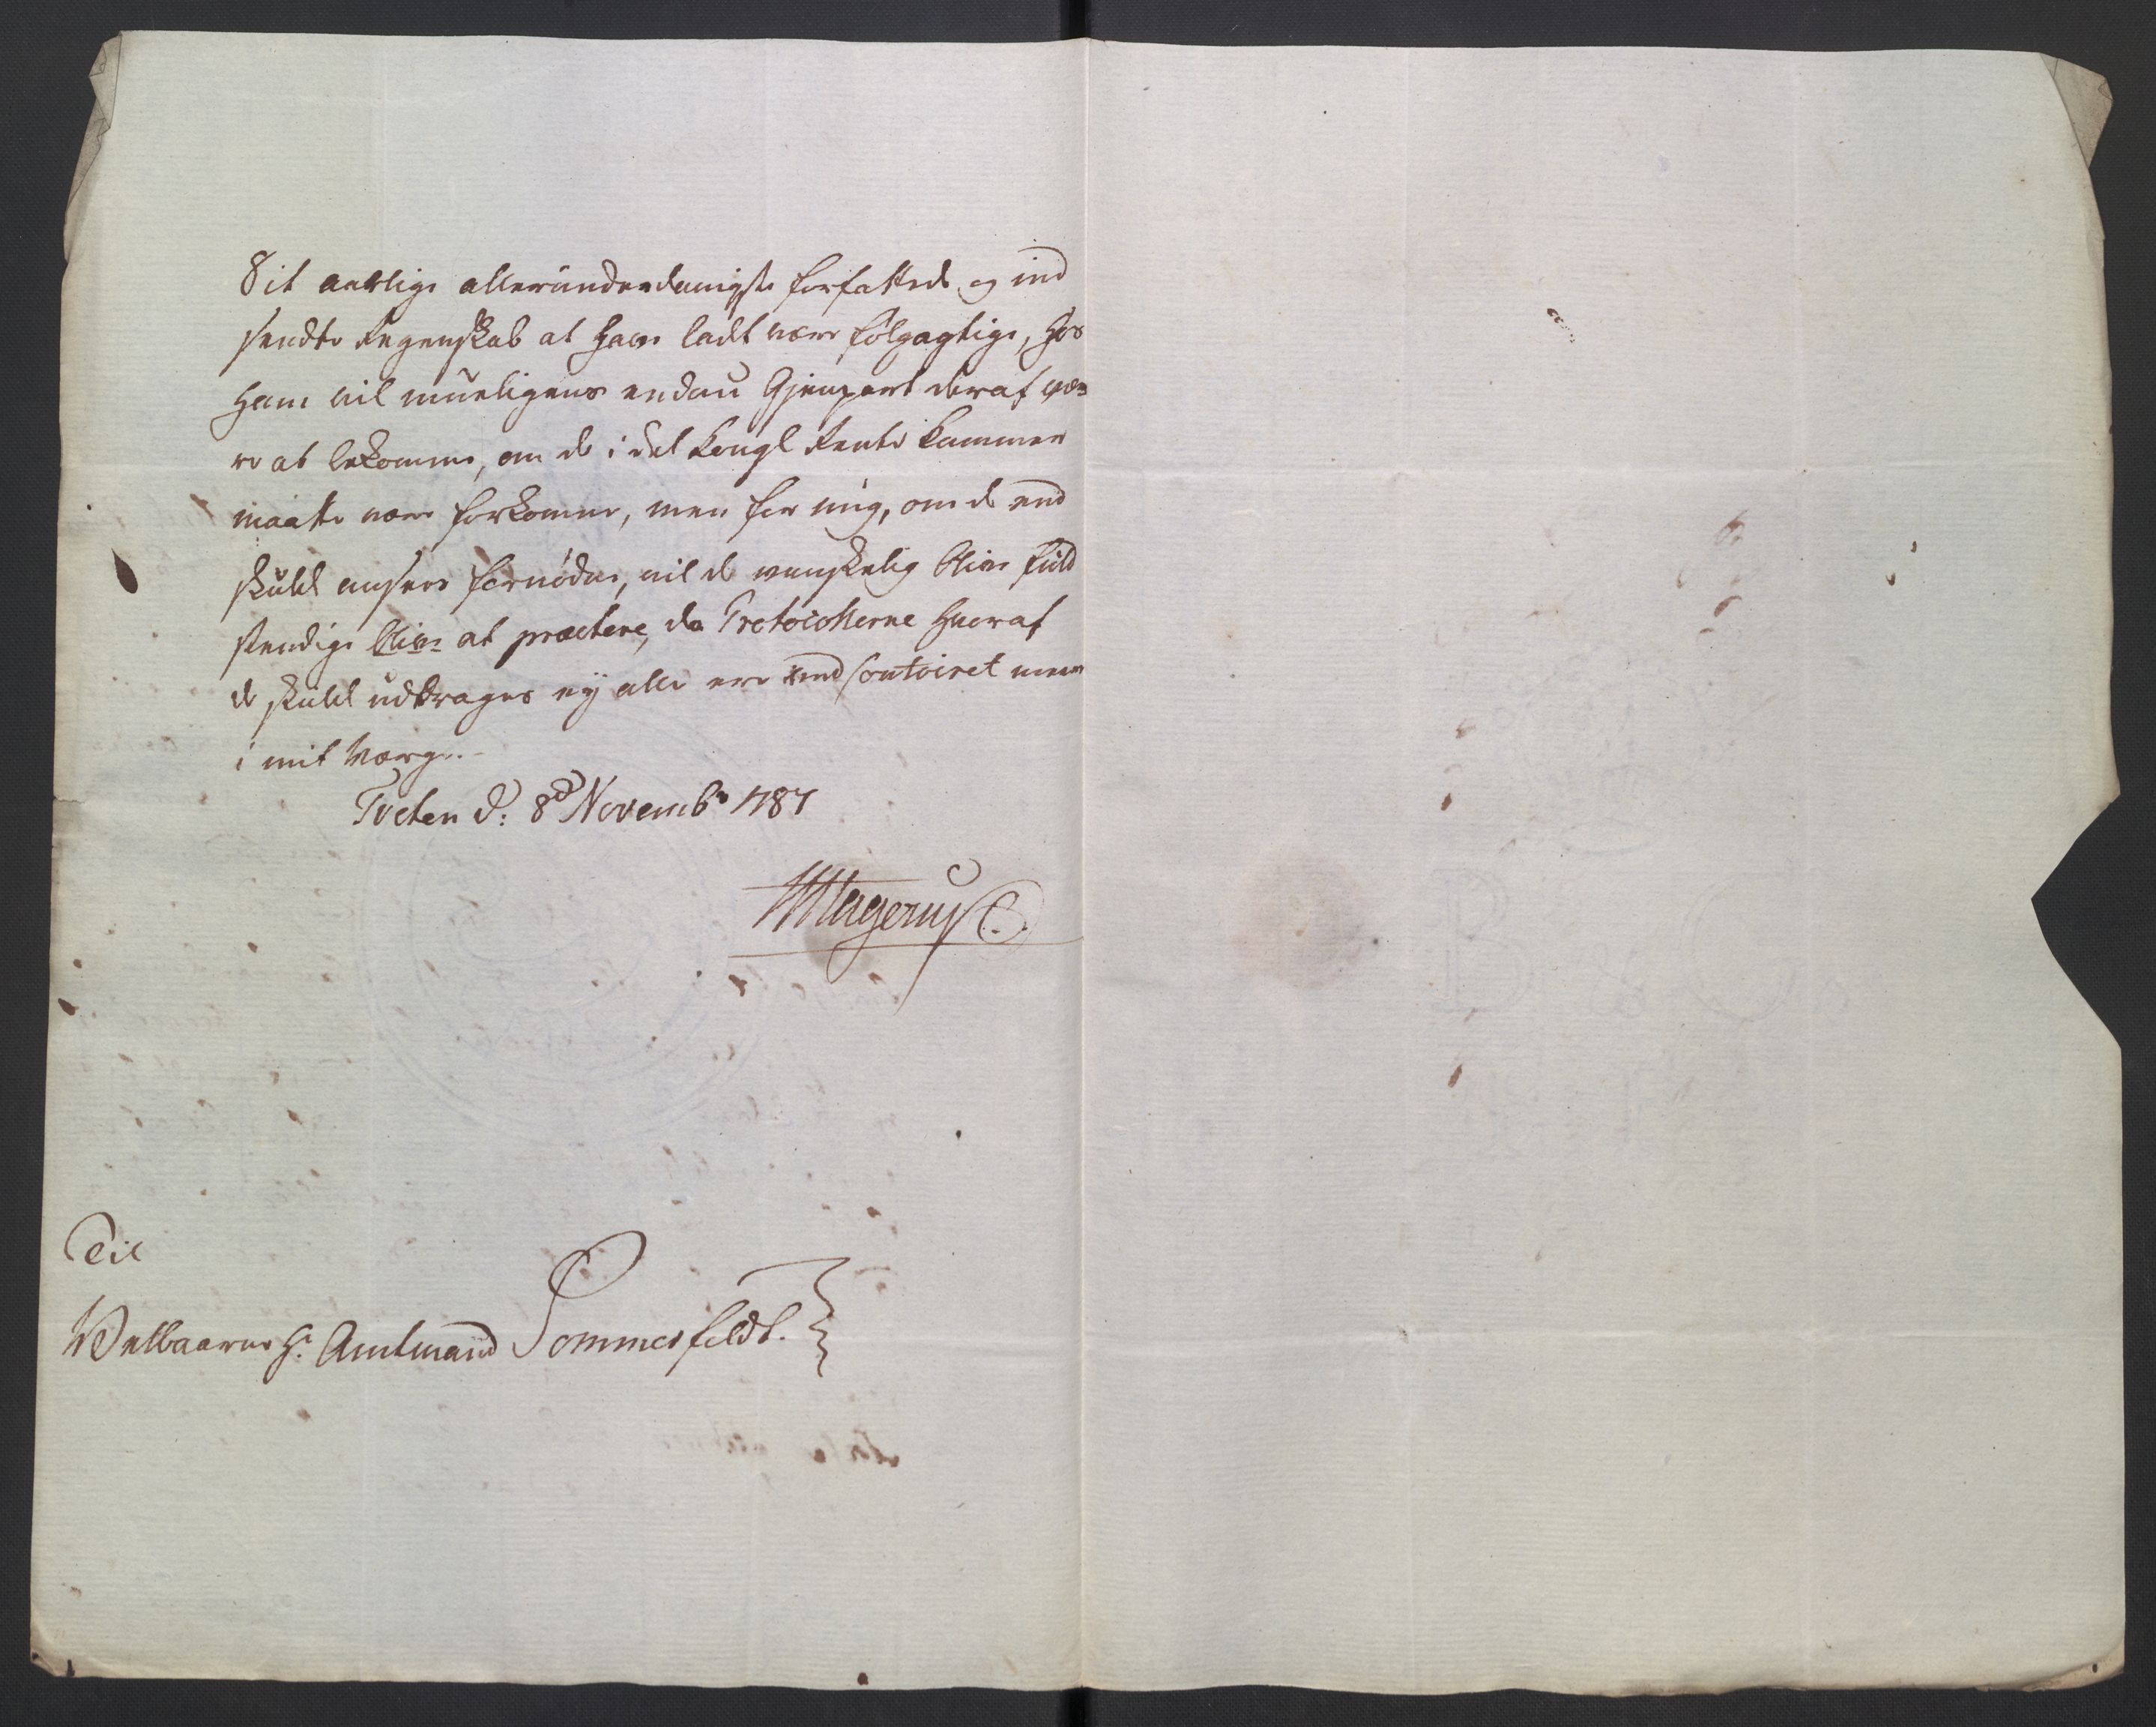 Sit aarlige allerunderdanigste forfattede og ind
sendte Regenskab at have ladt være følgagtige, hos
ham vil mueligens endnu Gjenpart deraf væ
re at bekomme, om de i det Kongl Rente Kammer
maatte være forkomne, men for mig, om de end
skulde ansees fornødne, vil de vanskelig blive fuld
stendige blive at præstere, da Protocollerne hvoraf
de skulde uddrages ej alle ere ved Contoiret meer
i mit Værge.
Tveten d: 8d Novembr 1787
Magerup
Til
Velbaarne Hr Amtmand Sommerfeldt.